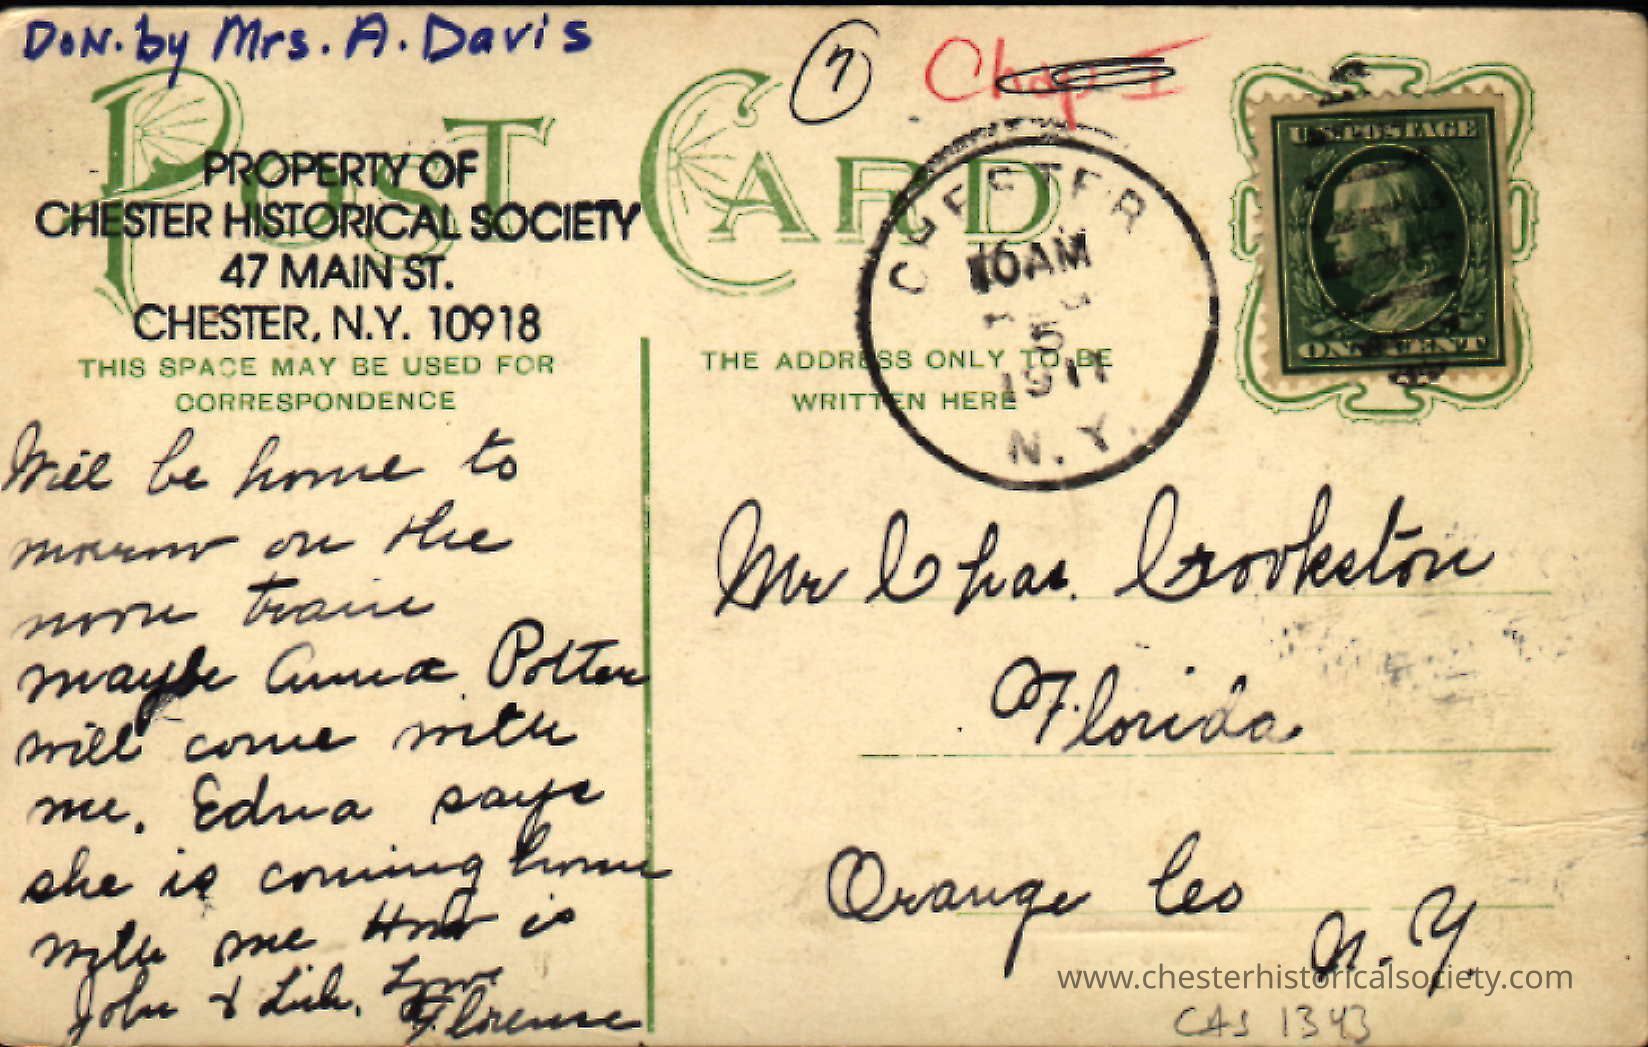 Don. by Mrs. A. Davis
7
Chap I
POST CARD
PROPERTY OF
CHESTER HISTORICAL SOCIETY
47 MAIN ST.
CHESTER, N.Y. 10918
THIS SPACE MAY BE USED FOR
CORRESPONDENCE
THE ADDRESS ONLY TO BE
WRITTEN HERE
CHESTER
10AM
AUG
5
1911
N.Y.
U.S. POSTAGE
ONE CENT
Will be home to
morrow on the
noon train
maybe Anna Potter
will come with
me. Edna says
she is coming home
with me How is
John & Love
Florence
Mr Chas. Crookston
Florida
Orange Co
N.Y.
www.chesterhistoricalsociety.com
CAS 1343